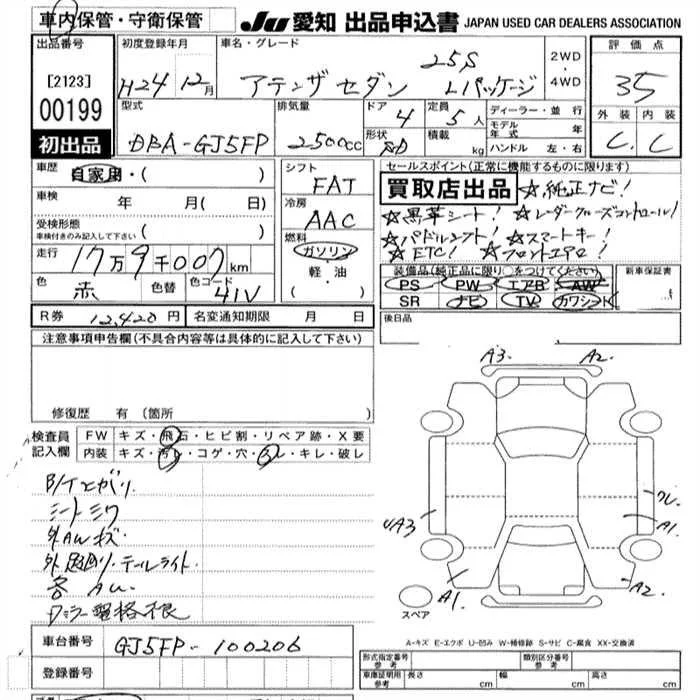 車内保管・守衛保管
JU 愛知 出品申込書 JAPAN USED CAR DEALERS ASSOCIATION
出品番号 [2123] 00199 初出品
初度登録年月 H24年12月
車名・グレード アテンザセダン 25S Lパッケージ
2WD・4WD
評価点 35
外装 内装 C. C
型式 DBA-GJ5FP
排気量 2500cc
ドア 4
形状 SD
定員 5人
積載 kg
ディーラー・並行
モデル年式 年
ハンドル 左・右
車歴 自家用・( )
車検 年 月( 日)
受検形態
車検付きのみ記入して下さい
走行 17万9千007km
色 赤 色替 色コード 41V
シフト FAT
冷房 AAC
燃料 ガソリン
軽・油
( )
セールスポイント(正常に機能するものに限ります)
買取店出品 ☆純正ナビ!
☆黒革シート! ☆レーダークルーズコントロール!
☆パドルシフト! ☆スマートキー!
☆ETC! ☆フロントエアロ!
装備品(純正品に限り○をつけてください) 新車保証書
PS PW エアB AW
SR ナビ TV カワシート
R券 12,420円 名変通知期限 月 日
後日品
注意事項申告欄(不具合内容等は具体的に記入して下さい)
修復歴 有(箇所
検査員記入欄
FW キズ・飛石・ヒビ割・リペア跡・X要
内装 キズ・汚レ・コゲ・穴・スレ・キレ・破レ
シートシワ
外AWキズ
テールライト
A3 A2
UA3
A1
A1 A2
スペア
A-キズ E-エクボ U-凹み W-補修跡 S-サビ C-腐食 XX-交換済
車台番号 GJ5FP-100206
登録番号
形式指定番号 参考 類別区分番号 参考
車庫証明用 参考 長さ cm 幅 cm 高さ cm